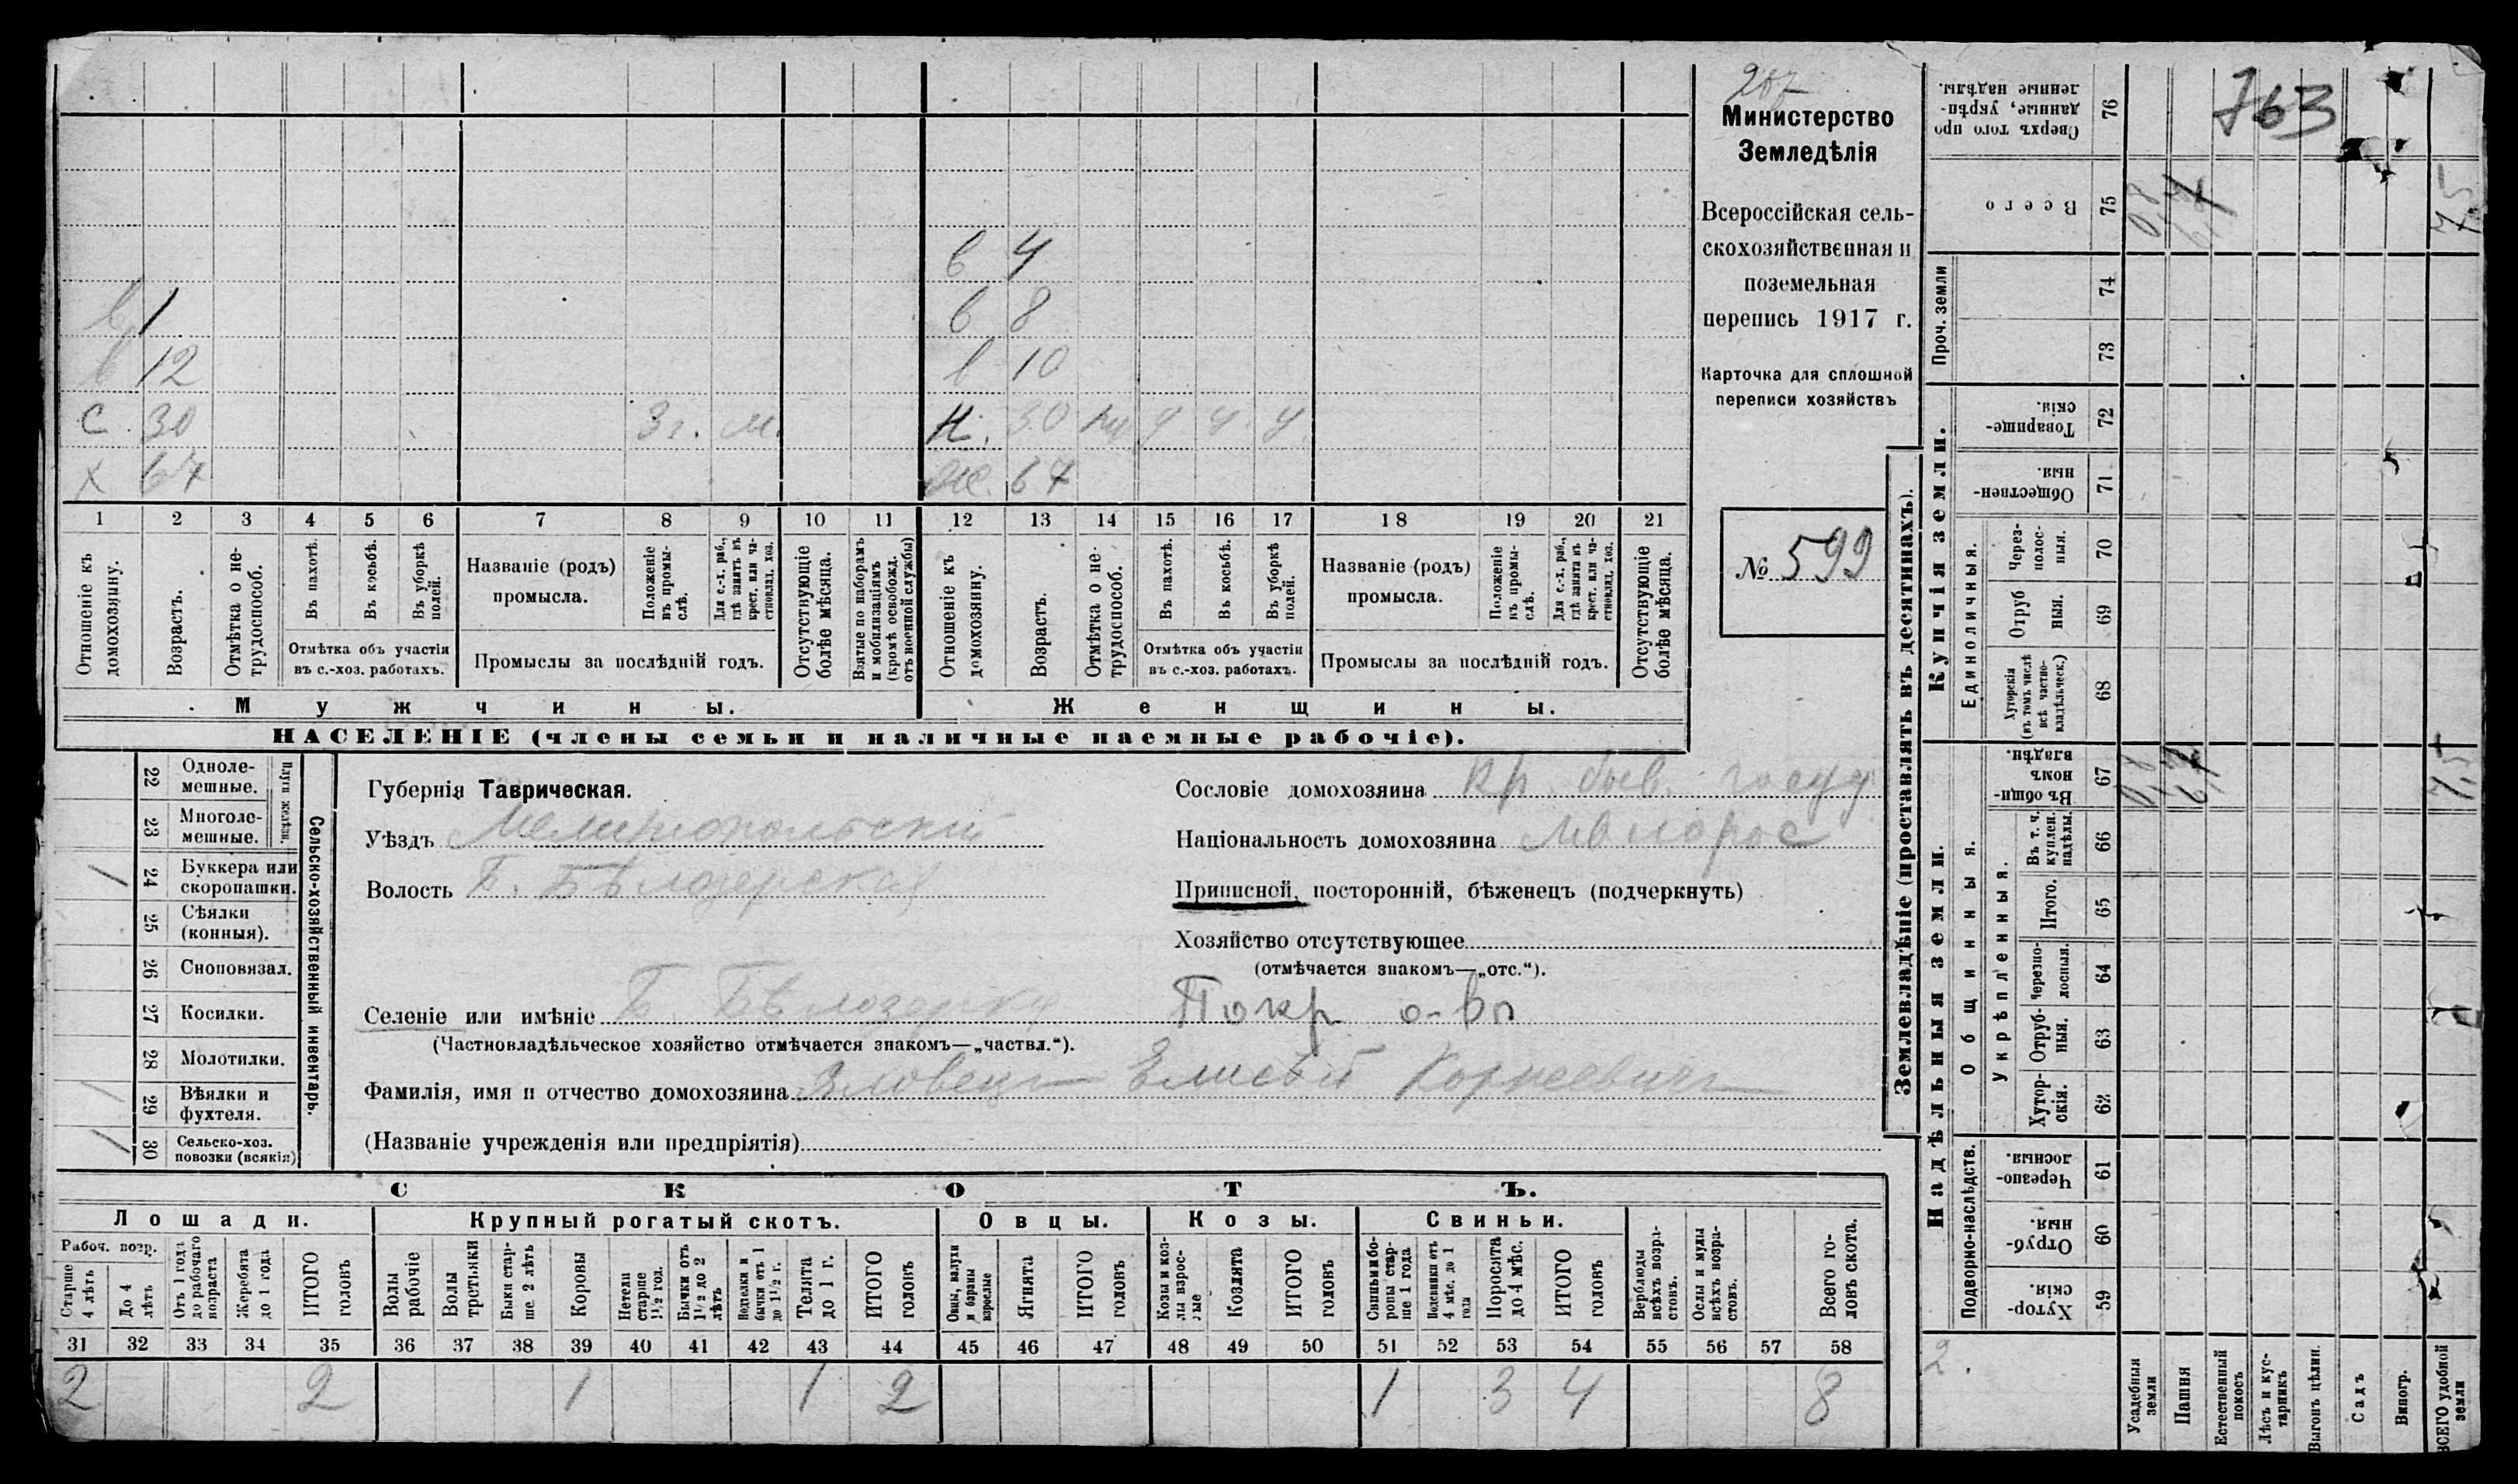 763
Министерство
Земледѣлія
Всероссійская сель-
скохозяйственная и
поземельная
перепись 1917 г.
Карточка для сплошной
переписи хозяйствъ
№ 599
в 4
в 8
в 10
в 1
в 12
С. 30 3 г. м.
Н. 30 у у у
Х 67
Ж. 67
1 2 3 4 5 6 7 8 9 10 11 12 13 14 15 16 17 18 19 20 21
Отношеніе къ домохозяину.
Возрастъ.
Отмѣтка о не-трудоспособ.
Въ пахотѣ.
Въ косьбѣ.
Въ уборкѣ полей.
Отмѣтка объ участіи
въ с.-хоз. работахъ.
Названіе (родъ)
промысла.
Положеніе въ промы-слѣ.
Для с.-х. раб., гдѣ занятъ въ крест. или ча-стновлад. хоз.
Промыслы за послѣдній годъ.
Отсутствующіе болѣе мѣсяца.
Взятые по наборамъ и мобилизаціямъ (кромѣ освобожд. отъ военной службы)
Отношеніе къ домохозяину.
Возрастъ.
Отмѣтка о не-трудоспособ.
Въ пахотѣ.
Въ косьбѣ.
Въ уборкѣ полей.
Отмѣтка объ участіи
въ с.-хоз. работахъ.
Названіе (родъ)
промысла.
Положеніе въ промы-слѣ.
Для с.-х. раб., гдѣ занята въ крест. или ча-стновлад. хоз.
Промыслы за послѣдній годъ.
Отсутствующіе болѣе мѣсяца.
Мужчины.
Женщины.
НАСЕЛЕНІЕ (члены семьи и наличные наемные рабочіе).
Сельско-хозяйственный инвентарь.
Плуги желѣзн.
22 Одноле-мешные.
23 Многоле-мешные.
1 24 Буккера или скоропашки.
25 Сѣялки (конныя).
26 Сноповязал.
27 Косилки.
28 Молотилки.
1 29 Вѣялки и фухтеля.
1 30 Сельско-хоз. повозки (всякія)
Губернія Таврическая.
Уѣздъ Мелитопольскій
Волость Б. Бѣлозерская
Сословіе домохозяина кр. быв. госуд
Національность домохозяина Малорос
Приписной, посторонній, бѣженецъ (подчеркнуть)
Хозяйство отсутствующее
(отмѣчается знакомъ—„отс.“).
Селеніе или имѣніе Б. Бѣлозерка Покр о-ва
(Частновладѣльческое хозяйство отмѣчается знакомъ—„частвл.“).
Фамилія, имя и отчество домохозяина Яловецъ Елисей Корнеевичъ
(Названіе учрежденія или предпріятія)
СКОТЪ.
Лошади. Крупный рогатый скотъ. Овцы. Козы. Свиньи.
Рабоч. возр.
Старше 4 лѣтъ
До 4 лѣтъ
Отъ 1 года до рабочаго возраста
Жеребята до 1 года
ИТОГО головъ
Волы рабочіе
Волы третьяки
Быки стар-ше 2 лѣтъ
Коровы
Нетели старше 1½ год.
Бычки отъ 1½ до 2 лѣтъ
Подтелки и бычки отъ 1 до 1½ г.
Телята до 1 г.
ИТОГО головъ
Овцы, валухи и бараны взрослые
Ягнята
ИТОГО головъ
Козы и коз-лы взрос-лые
Козлята
ИТОГО головъ
Свиньи и бо-ровы стар-ше 1 года
Подсвинки отъ 4 мѣс. до 1 года
Поросята до 4 мѣс.
ИТОГО головъ
Верблюды всѣхъ возра-стовъ.
Ослы и мулы всѣхъ возра-стовъ.
Всего го-ловъ скота.
31 32 33 34 35 36 37 38 39 40 41 42 43 44 45 46 47 48 49 50 51 52 53 54 55 56 57 58
2 2 1 1 2 1 3 4 8
Землевладѣніе (проставлять въ десятинахъ).
Сверхъ того про данные, укрѣп-ленные надѣлы. 76
Всего 75 0,8 7,5
Проч. земли 74
73
Купчія земли.
Товарище-скія. 72
Обществен-ныя. 71
Единоличныя.
Через-полос-ныя. 70
Отруб ныя. 69
Хуторскія (въ томъ числѣ всѣ частно-владѣльческ.) 68
Надѣльныя земли.
Общинныя.
Въ общи-номъ владѣн. 67 0,8 7,5
Укрѣпленныя.
Въ т. ч. куплен. надѣлы. 66
Итого. 65
Черезпо-лосныя. 64
Отруб-ныя. 63
Хутор-скія. 62
Подворно-наслѣдств.
Черезпо-лосныя. 61
Отруб-ныя. 60
Хутор-скія. 59
2.
Усадебныя земли
Пашня
Естественный покосъ
Лѣсъ и кус-тарникъ
Выгонъ цѣлин.
Садъ
Виногр.
ВСЕГО удобной земли